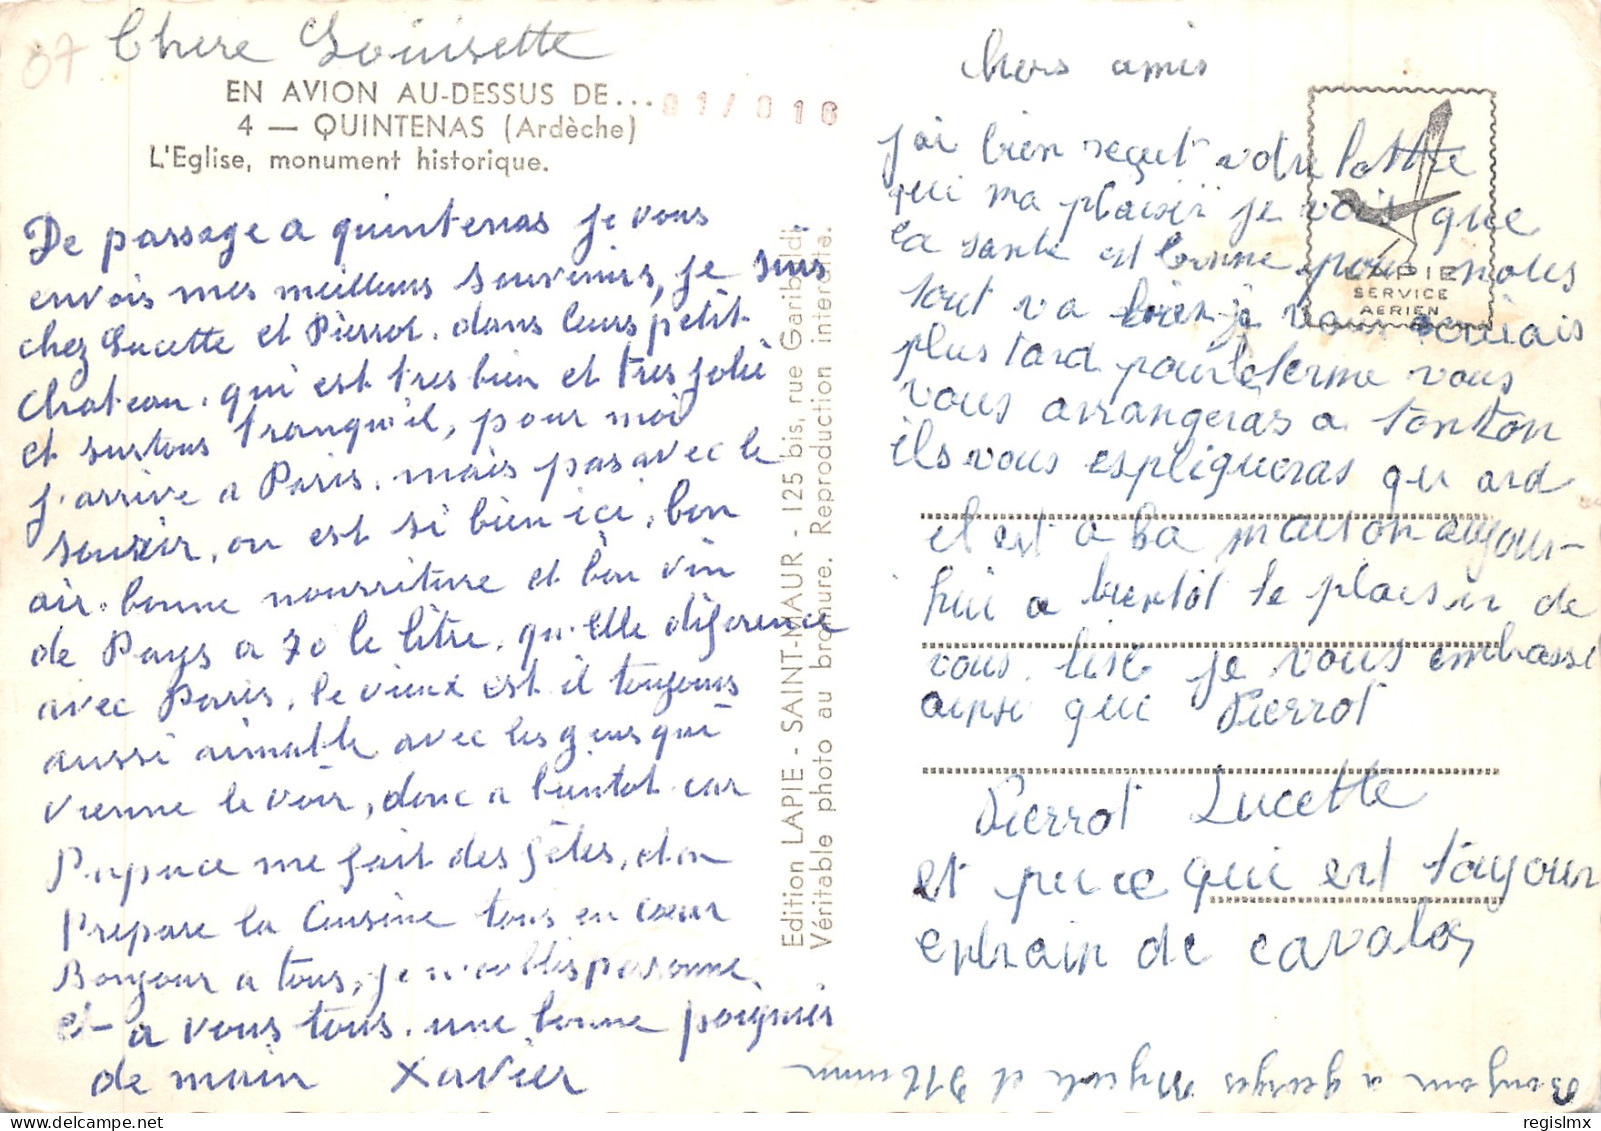 87
Chere Louisette
EN AVION AU-DESSUS DE...
4 — QUINTENAS (Ardèche)
L'Eglise, monument historique.
De passage a quintenas je vous
envois mes meilleurs souvenirs, je suis
chez Lucette et Pierrot. dans leurs petit
chateau. qui est tres bien et tres jolie
et surtous tranquil, pour moi
j'arrive a Paris. mais pas avec le
sourir, on est si bien ici, bon
air. bonne nourriture et bon vin
de Pays a 70 le litre, qu'elle diference
avec Paris. le vieux est il toujours
aussi aimable avec les gens qui
vienne le voir, donc a bientot car
Pupuce me fait des fêtes, et on
Prepare la Cuisine tous en cœur
Bonjour a tous, je n'oublis personne
et a vous tous. une bonne poignies
de main Xavier
Edition LAPIE - SAINT-MAUR - 125 bis, rue Garibaldi.
Véritable photo au bromure. Reproduction interdite.
chers amis
LAPIE
SERVICE
AERIEN
j'ai bien reçut votre lettre
qui ma plaisir je vois que
la sante est bonne pour nous
tout va bien je vous
plus tard pour le terme vous
vous arrangeras a tonton
ils vous espligueras qu and
il est a la maison aujour-
hui a bientot le plaisir de
vous lise je vous embasse
ainsi que Pierrot
Pierrot Lucette
et puce qui est toujour
entrain de cavaler
Bonjour a georges et
regislmx